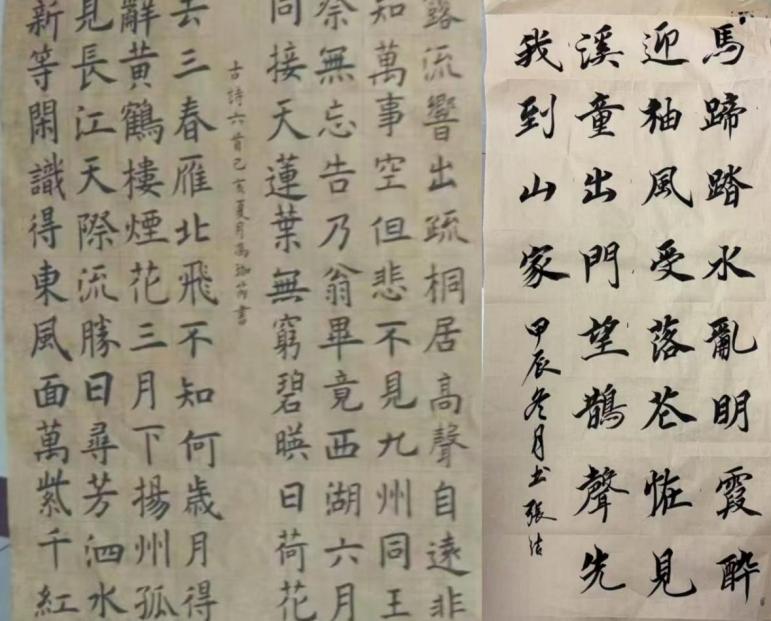 馬蹄踏水亂明霞醉
迎袖風受落花怪見
溪童出門望鵲聲先
我到山家
甲辰冬月书張洁
露流響出疏桐居高聲自遠非
知萬事空但悲不見九州同王
祭無忘告乃翁畢竟西湖六月
同接天蓮葉無窮碧暎日荷花
古詩六首己亥夏月書
去三春雁北飛不知何歲月得
辭黃鶴樓煙花三月下揚州孤
見長江天際流勝日尋芳泗水
新等閑識得東風面萬紫千紅